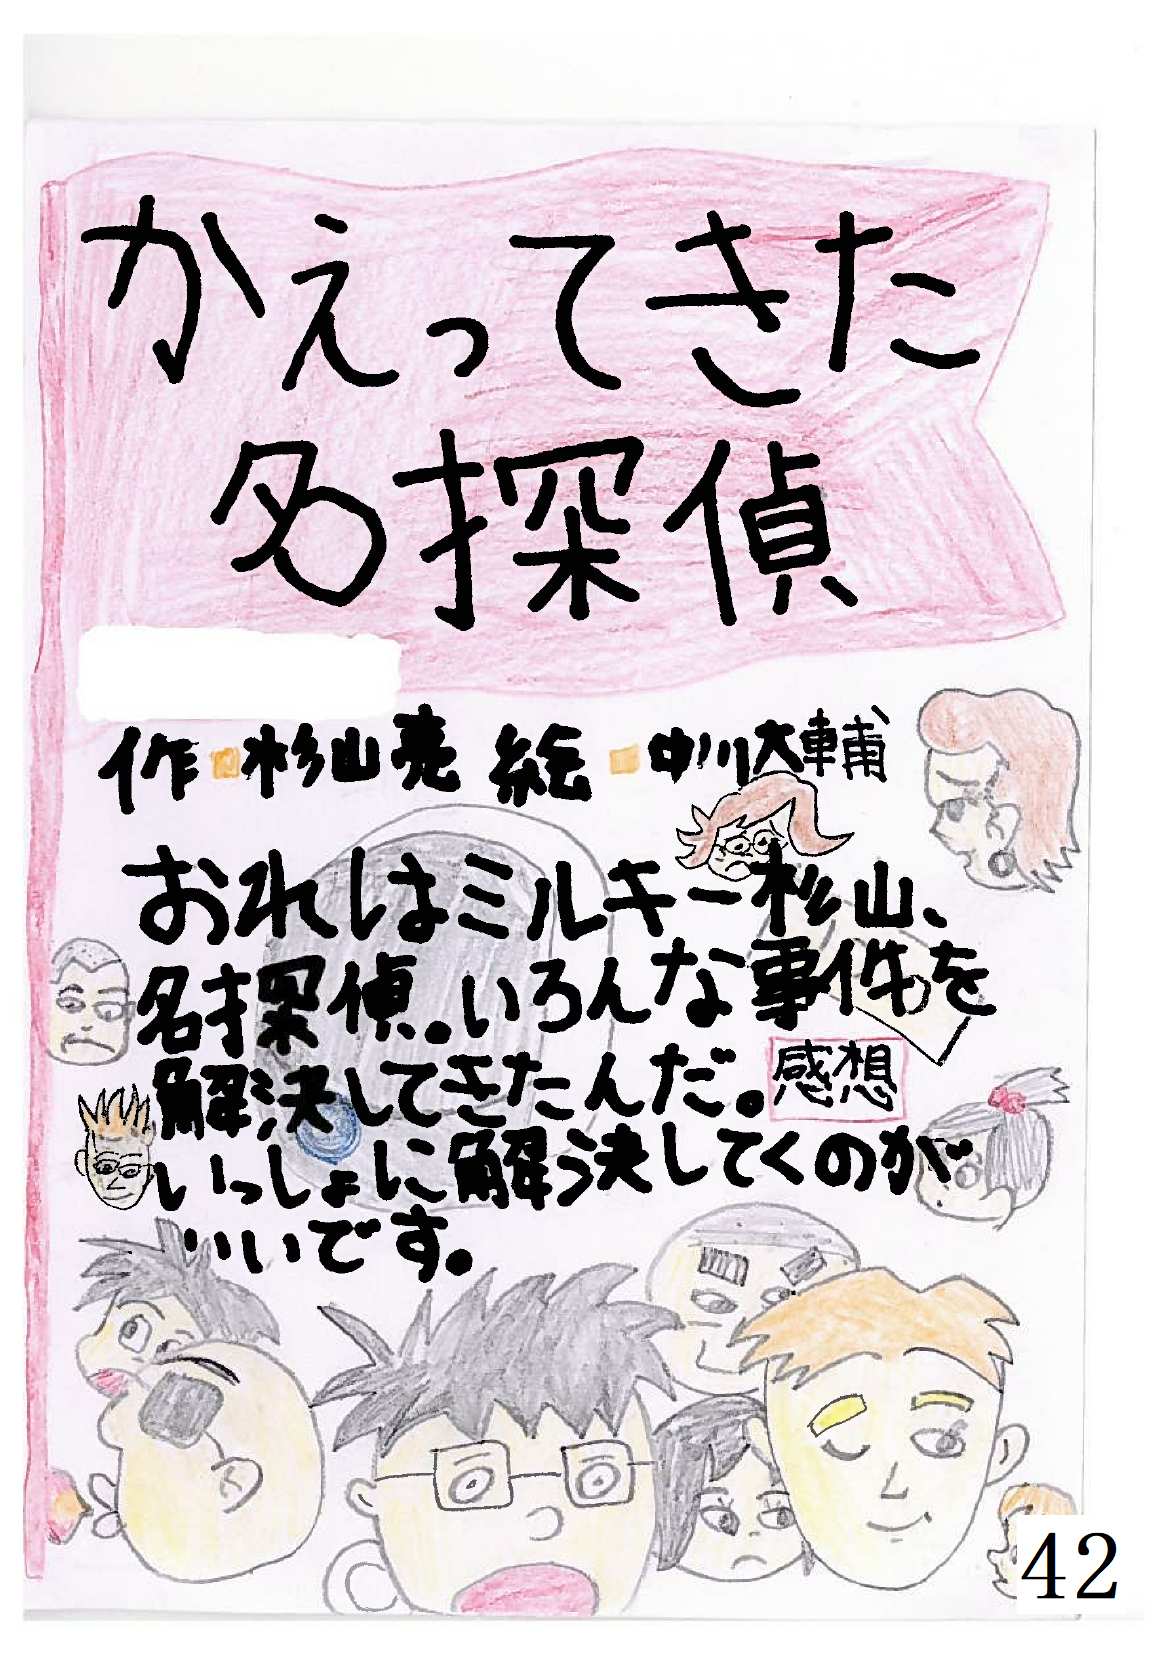 かえってきた
名探偵
作 杉山亮 絵 中川大輔
おれはミルキー杉山、
名探偵。いろんな事件を
解決してきたんだ。感想
いっしょに解決してくのが
いいです。
42